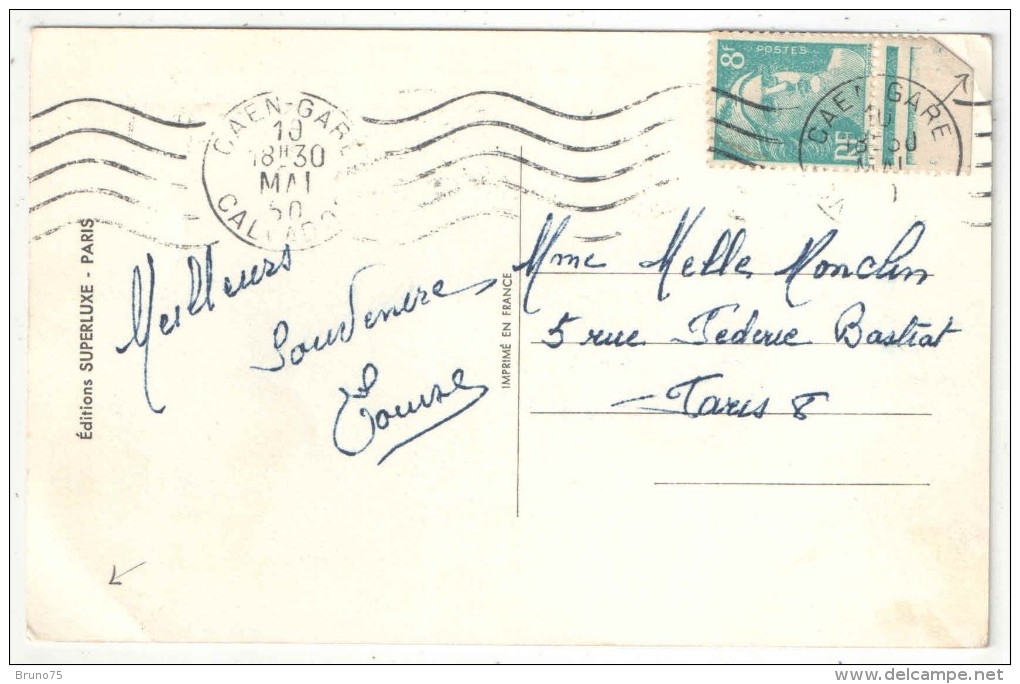 CAEN-GARE
10
18H30
MAI
50
CALVADOS
8F
POSTES
RF
CAEN-GARE
10
18H30
MAI
Éditions SUPERLUXE - PARIS
IMPRIMÉ EN FRANCE
Meilleurs
Souvenirs
Mme Melle Monclin
5 rue Féderic Bastiat
Paris 8
Bruno75
www.delcampe.net